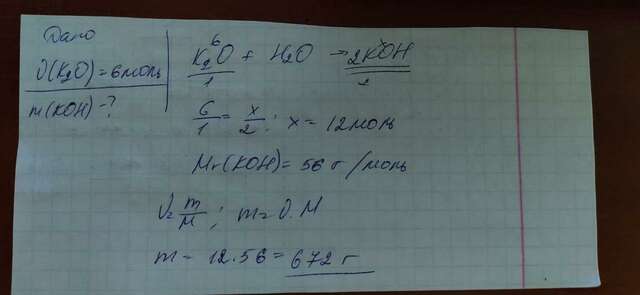 Дано
ν(K₂O) = 6 моль
m(KOH) - ?
6 x
K₂O + H₂O → 2KOH
1 2
6/1 = x/2 ; x = 12 моль
Mr(KOH) = 56 г/моль
ν = m/M ; m = ν · M
m = 12 · 56 = 672 г